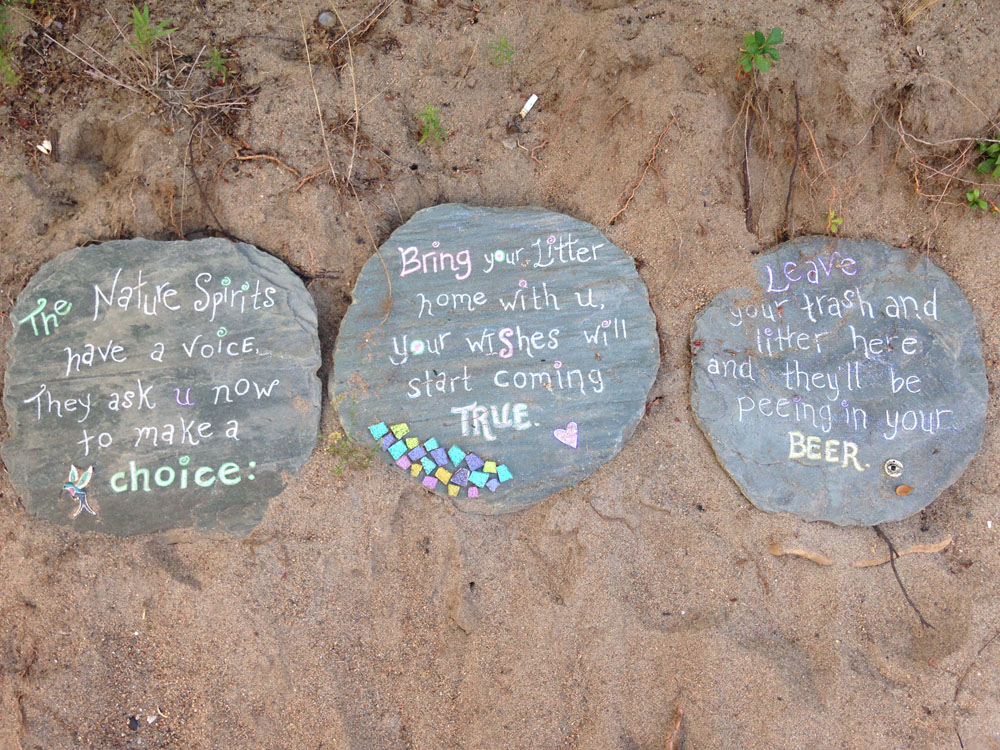 The Nature Spirits
have a voice.
They ask u now
to make a
choice:
Bring your Litter
home with u,
your wishes will
start coming
TRUE.
Leave
your trash and
litter here
and they'll be
peeing in your
BEER.